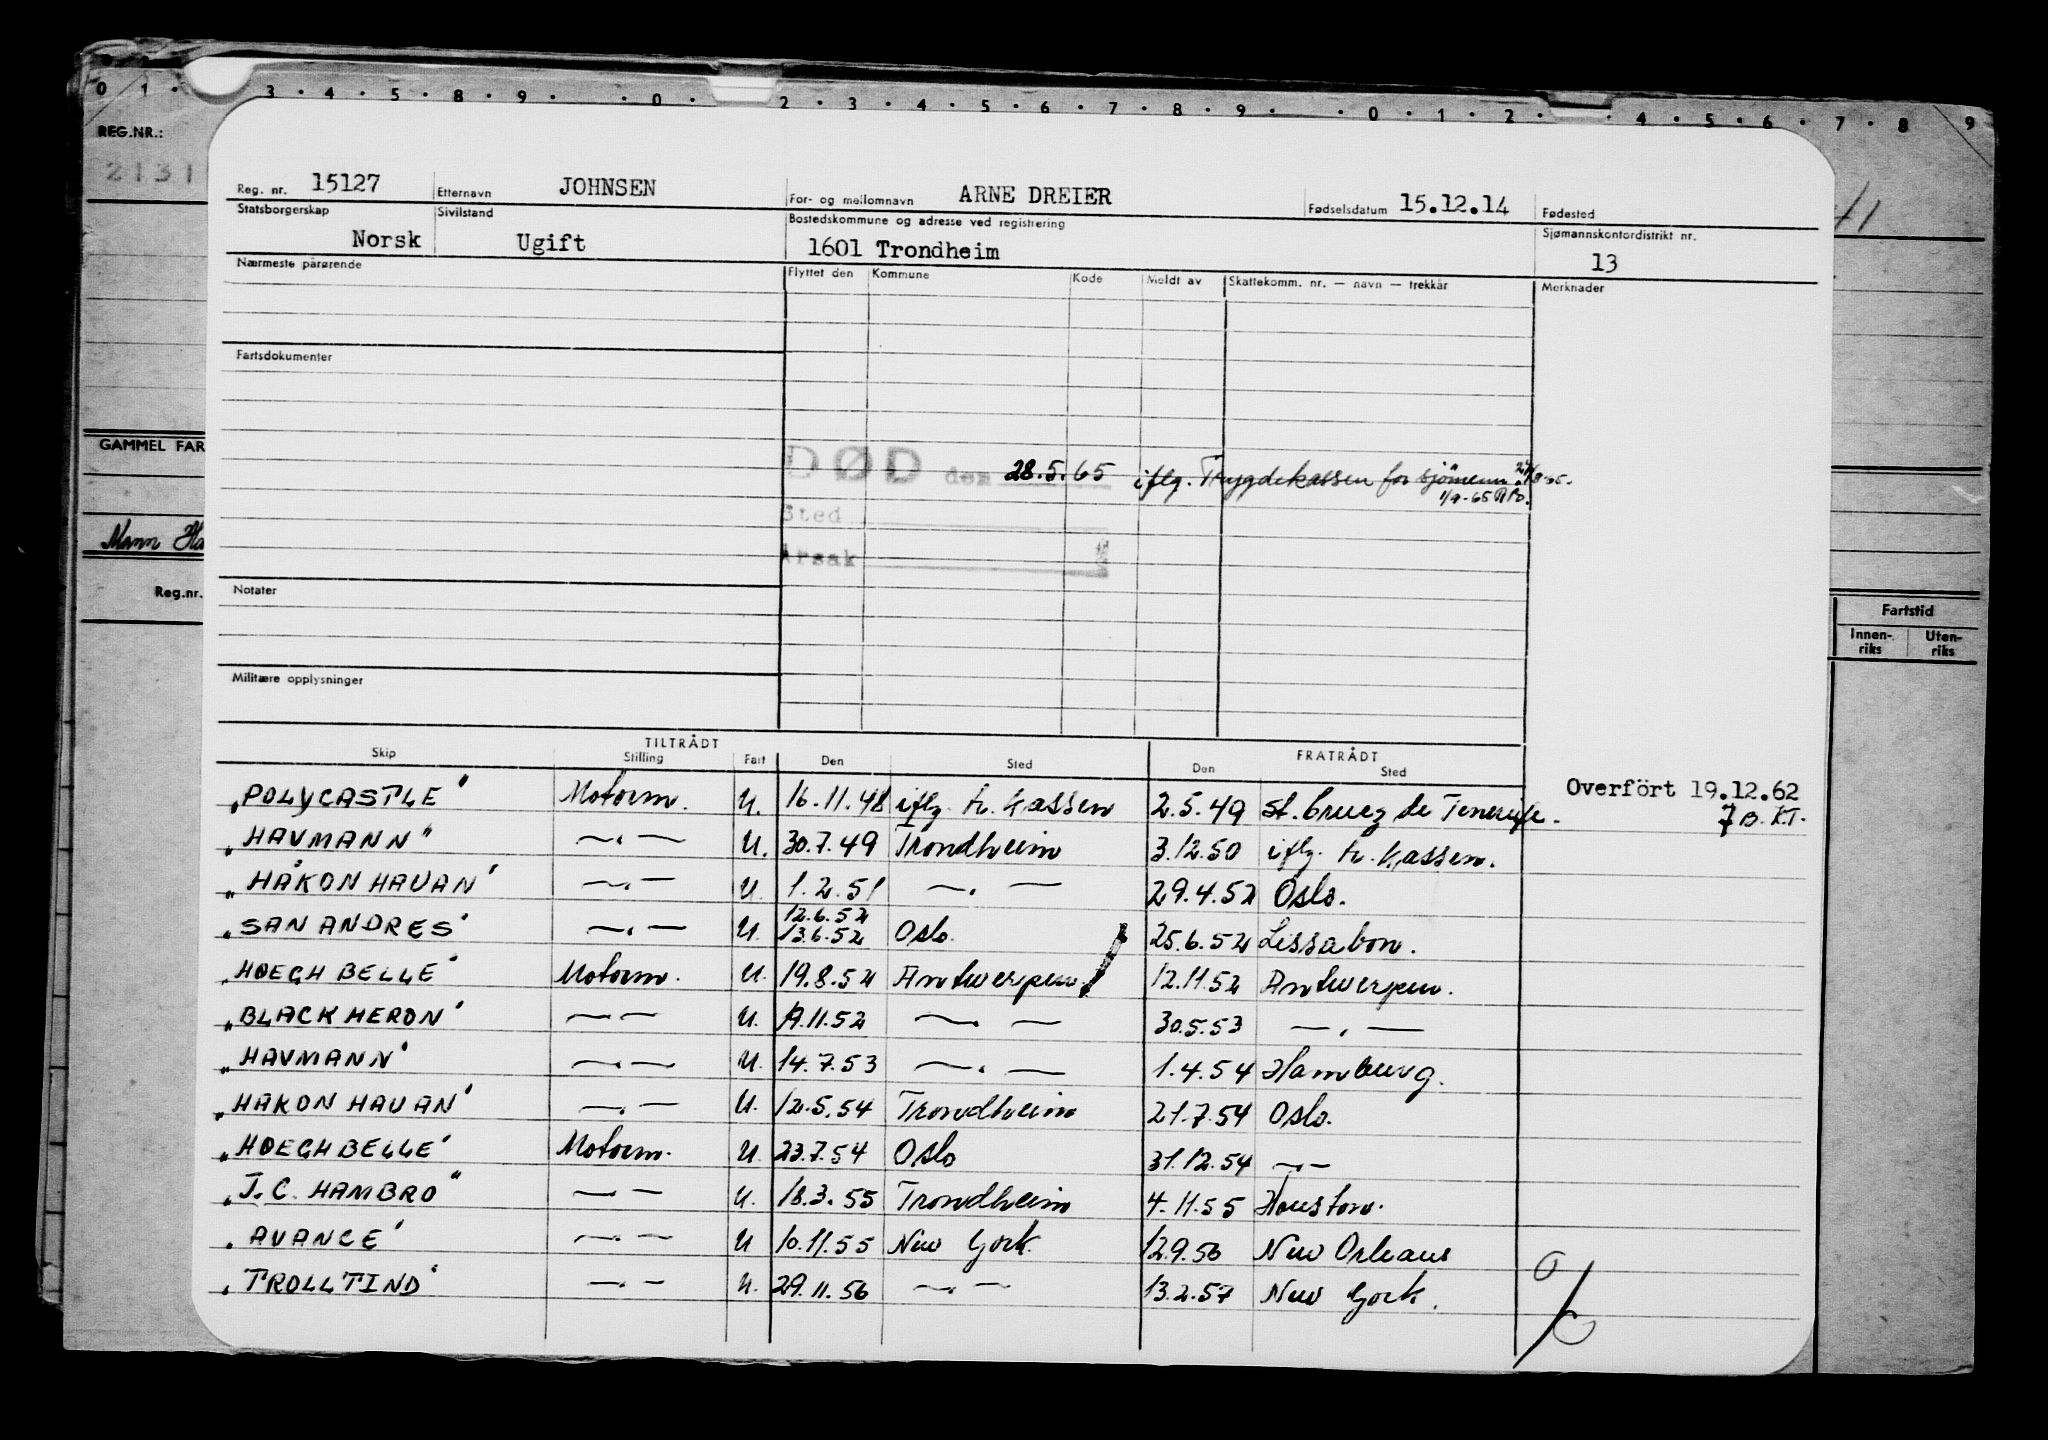 0 1 · 3 · 4 · 5 · 8 · 9 · · 0 · 2 · 3 · 4 · 5 · 6 · 7 · 8 · 9 · · 0 · 1 · 2 · · 4 · 5 · 6 · 7 · 8 9
REG.NR.:
2131
Reg. nr. 15127 Etternavn JOHNSEN For- og mellomnavn ARNE DREIER Fødselsdatum 15.12.14 Fødested
Statsborgerskap Sivilstand Bostedskommune og adresse ved registrering Sjømannskontordistrikt nr.
Norsk Ugift 1601 Trondheim 13
Nærmeste pårørende Flyttet den Kommune Kode Meldt av Skattekomm. nr. — navn — trekkår Merknader
Fartsdokumenter
GAMMEL FAR
DØD den 28.5.65 iflg. Trygdekassen for sjömenn
1/9-65
Sted
Mann
Årsak
Reg.nr.
Notater
Fartstid
Innen-riks Uten-riks
Militære opplysninger
TILTRÅDT FRATRÅDT
Skip Stilling Fart Den Sted Den Sted
Overfört 19.12.62
"POLYCASTLE" Motorm. U. 16.11.48 iflg. tr. kassen 2.5.49 St. Cruez de Teneriffe.
7 B. KT.
"HAVMANN" —.— U. 30.7.49 Trondheim 3.12.50 iflg. tr. kassen.
"HÅKON HAVAN" —.— U. 1.2.51 —.— 29.4.52 Oslo.
12.6.52
"SAN ANDRES" —.— U. 13.6.52 Oslo. 25.6.52 Lissabon.
"HOEGH BELLE" Motorm. U. 19.8.52 Antwerpen 12.11.52 Antwerpen.
"BLACK HERON" —.— U. 19.11.52 —.— 30.5.53 —.—
"HAVMANN" —.— U. 14.7.53 —.— 1.4.54 Hamburg.
"HAKON HAVAN" —.— U. 12.5.54 Trondheim 21.7.54 Oslo.
"HOEGH BELLE" Motorm. U. 23.7.54 Oslo 31.12.54 —.—
"J.C. HAMBRO" —.— U. 18.3.55 Trondheim 4.11.55 Houston.
"AVANCE" —.— U 10.11.55 New York. 12.9.56 New Orleans
"TROLLTIND" —.— U. 29.11.56 —.— 13.2.57 New York.